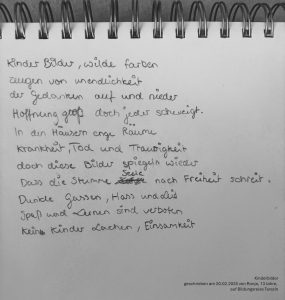 Kinder Bilder, wilde farben
zeugen von unendlichkeit
der Gedanken auf und nieder
Hoffnung groß doch jeder schweigt.
In den Häusern enge Räume
Krankheit, Tod und Traurigkeit
doch diese Bilder spiegeln wieder
Dass die Stumme Seele nach Freiheit schreit.
Dunkle Gassen, Hass und Leid
Spaß und Lernen sind verboten
kein Kinder Lachen, Einsamkeit
Kinderbilder
geschrieben am 20.02.2020 von Ronja, 13 Jahre,
auf Bildungsreise Terezín